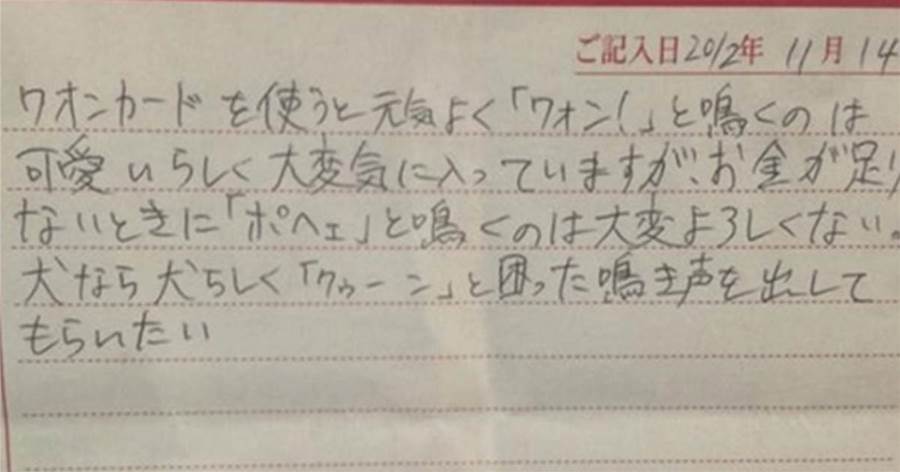 ご記入日2012年 11月 14
ワオンカードを使うと元気よく「ワォン!」と鳴くのは
可愛いらしく大変気に入っていますが、お金が足り
ないときに「ポヘェ」と鳴くのは大変よろしくない。
犬なら犬らしく「クゥーン」と困った鳴き声を出して
もらいたい